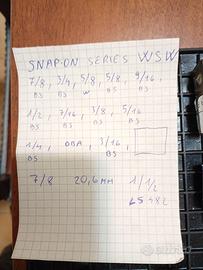 SNAP-ON SERIES WSW
7/8 3/4 5/8 5/8 9/16
BS BS W BS BS
1/2 7/16 3/8 5/16
BS BS BS BS
1/4 0BA 3/16
BS BS
7/8 20,6 MM 1 1/2
LS 482